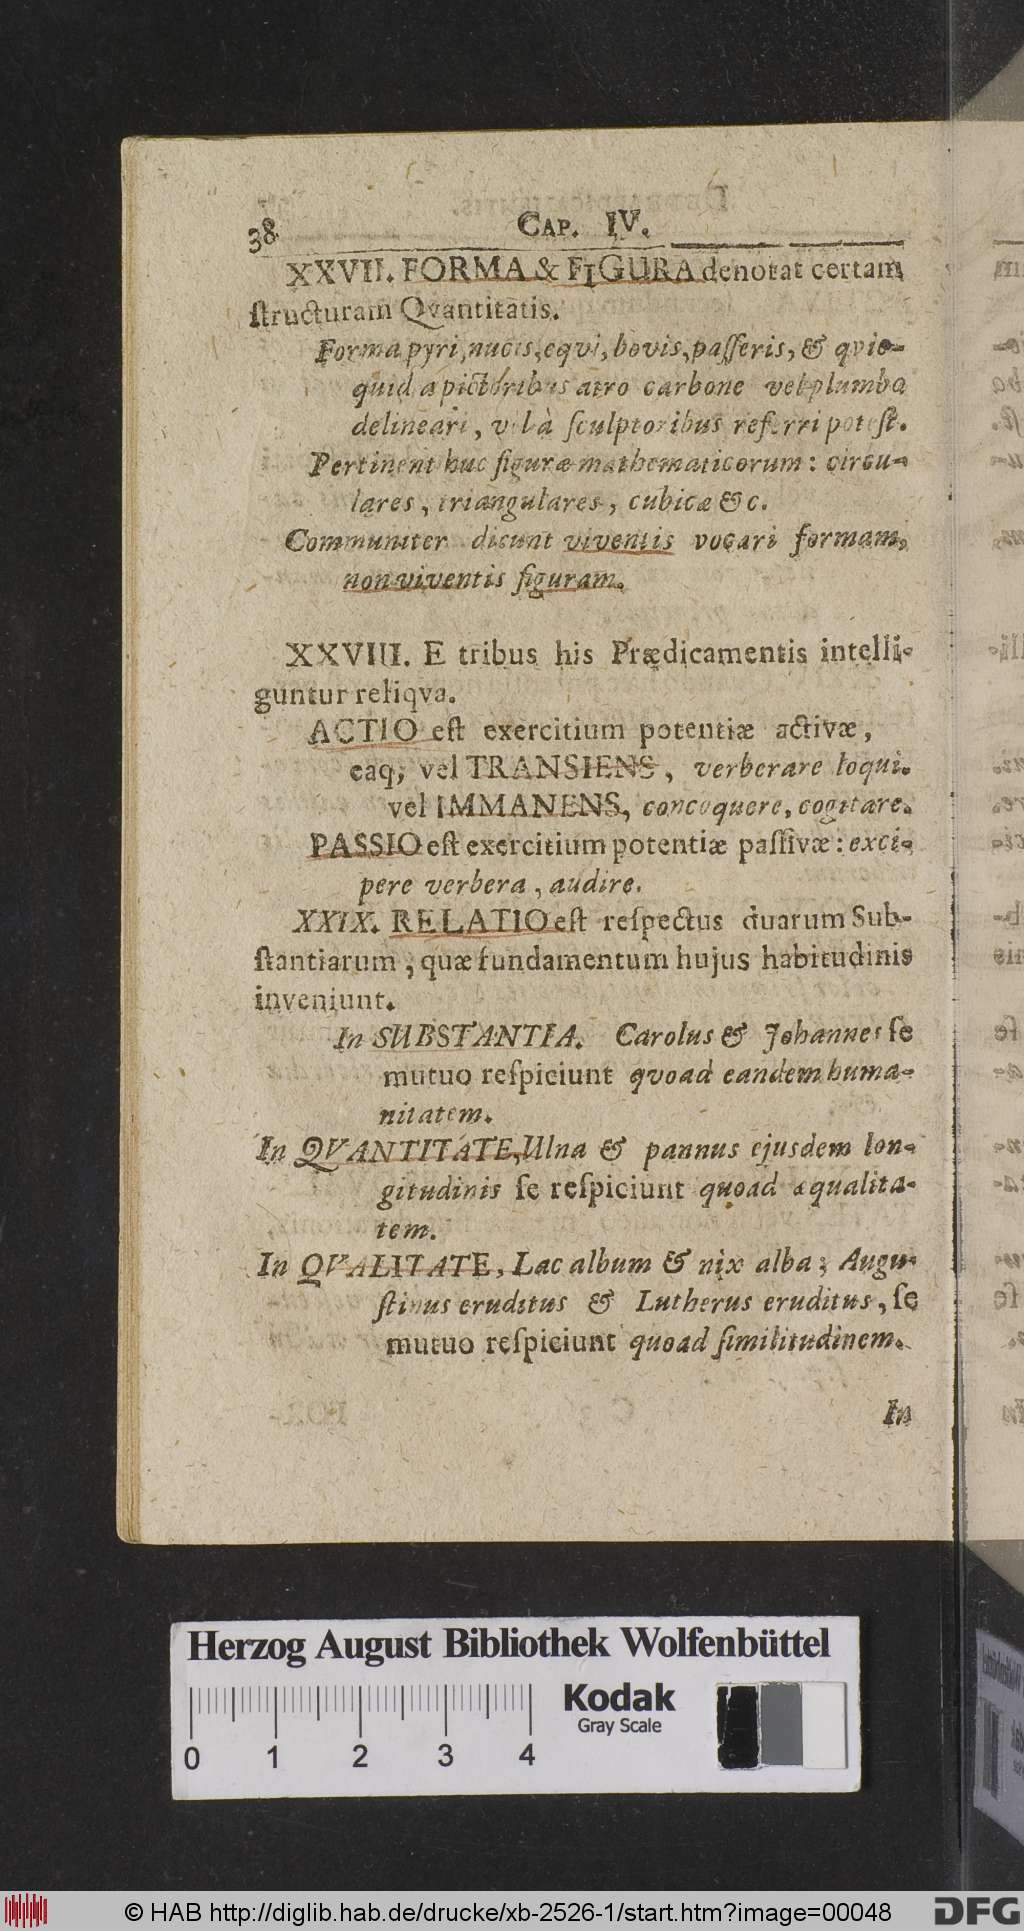 38 CAP. IV.
XXVII. FORMA & FIGURA denotat certam
ſtructuram Qvantitatis.
Forma pyri, nucis, eqvi, bovis, paſſeris, & qvic-
quid a pictoribus atro carbone vel plumbo
delineari, vel à ſculptoribus referri poteſt.
Pertinent huc figuræ mathematicorum: circu-
lares, triangulares, cubicæ &c.
Communiter dicunt viventis vocari formam,
non viventis figuram.
XXVIII. E tribus his Prædicamentis intelli-
guntur reliqva.
ACTIO eſt exercitium potentiæ activæ,
eaq; vel TRANSIENS, verberare loqui.
vel IMMANENS, concoquere, cogitare.
PASSIO eſt exercitium potentiæ paſſivæ: exci-
pere verbera, audire.
XXIX. RELATIO eſt reſpectus duarum Sub-
ſtantiarum, quæ fundamentum hujus habitudinis
inveniunt.
In SUBSTANTIA. Carolus & Johannes ſe
mutuo reſpiciunt qvoad eandem huma-
nitatem.
In QVANTITATE, Ulna & pannus ejusdem lon-
gitudinis ſe reſpiciunt quoad æqualita-
tem.
In QVALITATE, Lac album & nix alba; Augu-
ſtinus eruditus & Lutherus eruditus, ſe
mutuo reſpiciunt quoad ſimilitudinem.
In
Herzog August Bibliothek Wolfenbüttel
0 1 2 3 4
Kodak
Gray Scale
© HAB http://diglib.hab.de/drucke/xb-2526-1/start.htm?image=00048
DFG